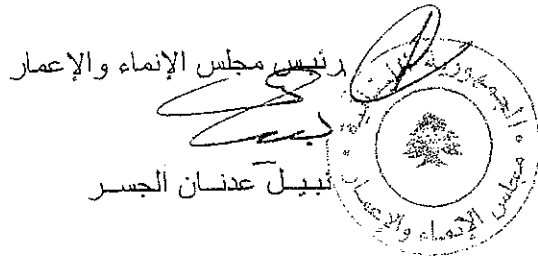 رئيس مجلس الإنماء والإعمار
نبيل عدنان الجسر
الجمهورية اللبنانية
مجلس الإنماء والإعمار